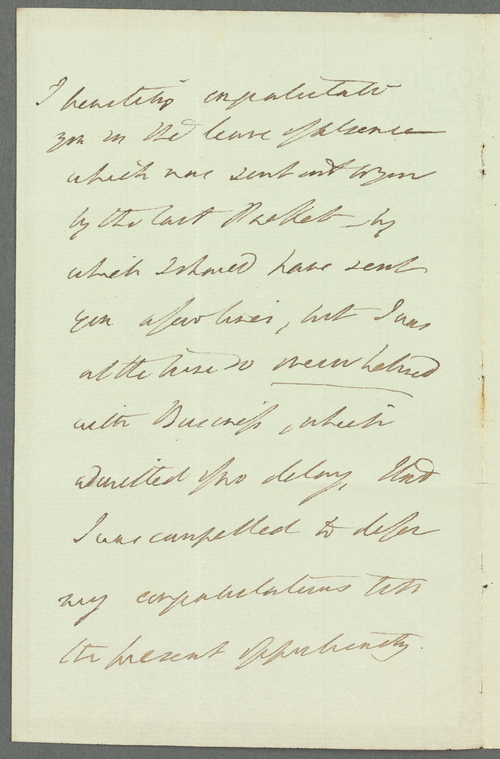 I heartily congratulate
you on the leave of absence
which was sent out to you
by the last Packet, by
which I should have sent
you a few lines, but I was
at the time so overwhelmed
with Business, which
admitted of no delay, that
I was compelled to defer
my congratulations till
the present opportunity.